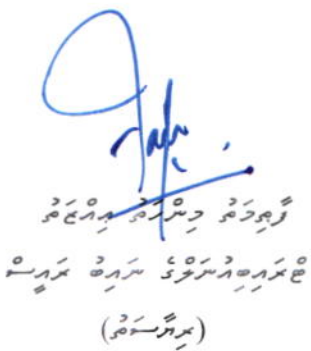 ފާތިމަތު މިންހާތު ޢިއްޒަތު
ޓްރައިބިއުނަލްގެ ނައިބު ރައީސް
(ރިޔާސަތު)